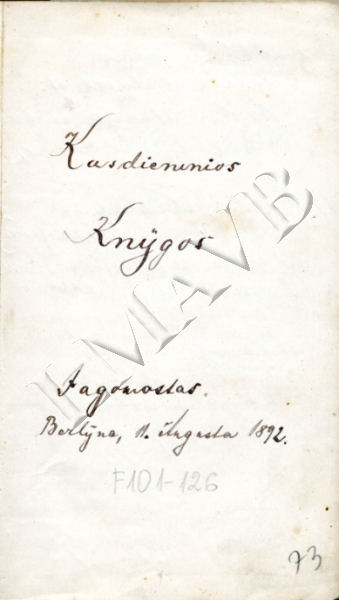 Kasdieninios
Knÿgos
Jagomastas.
Berlÿne, 11. Augusta 1892.
F101-126
73
LMAVB